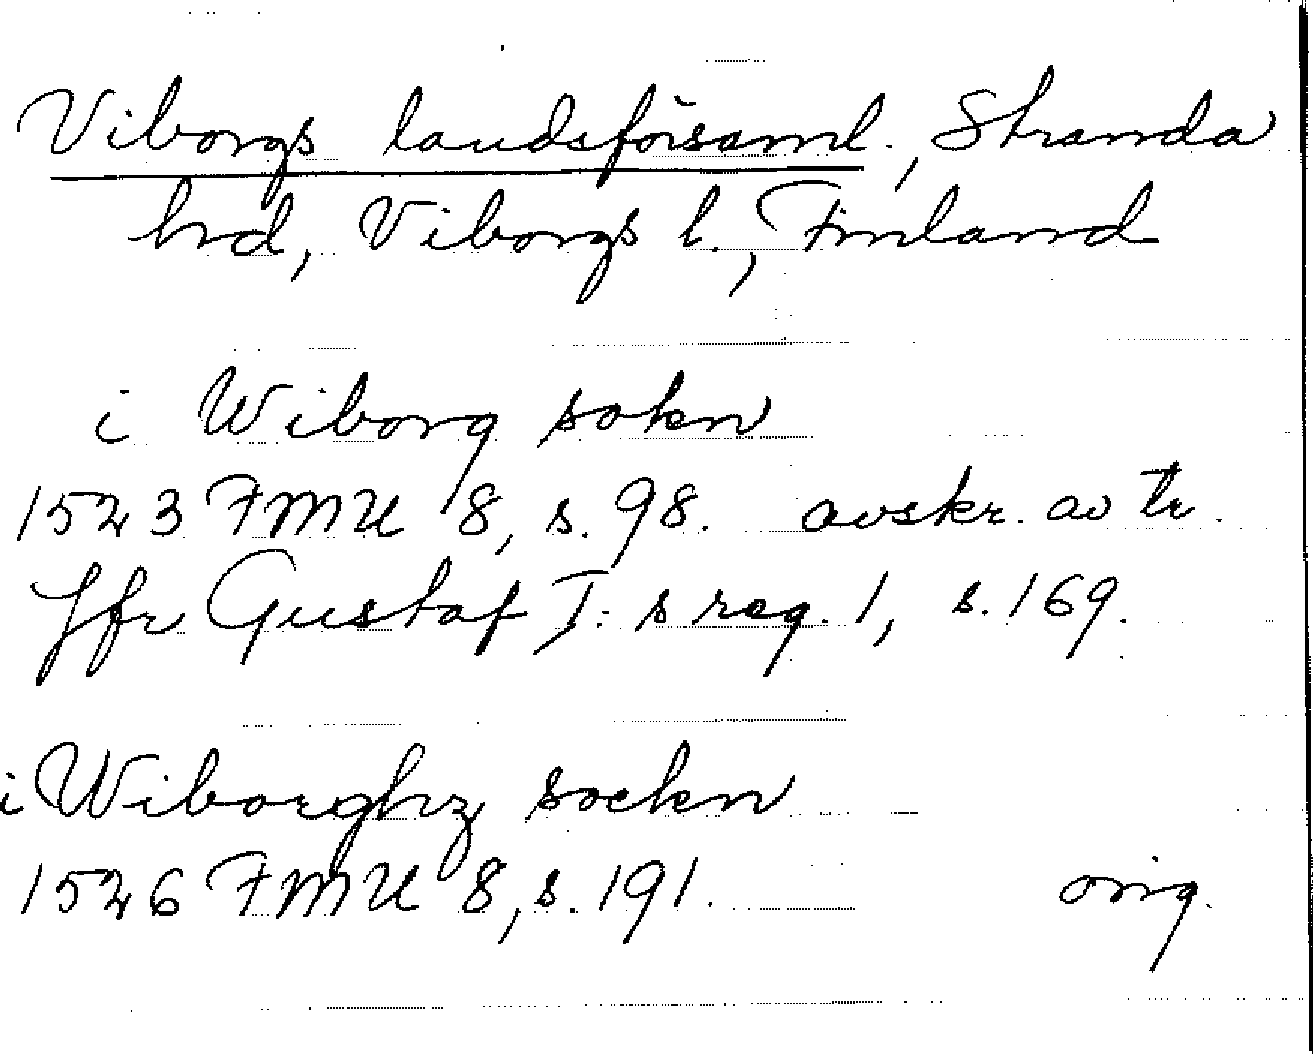 Viborgs landsförsaml., Stranda
hd, Viborgs l., Finland
i Wiborg sokn
1523 FMU 8, s. 98. avskr. av tr.
Jfr Gustaf I:s reg. 1, s. 169.
i Wiborghz sockn
1526 FMU 8, s. 191. orig.